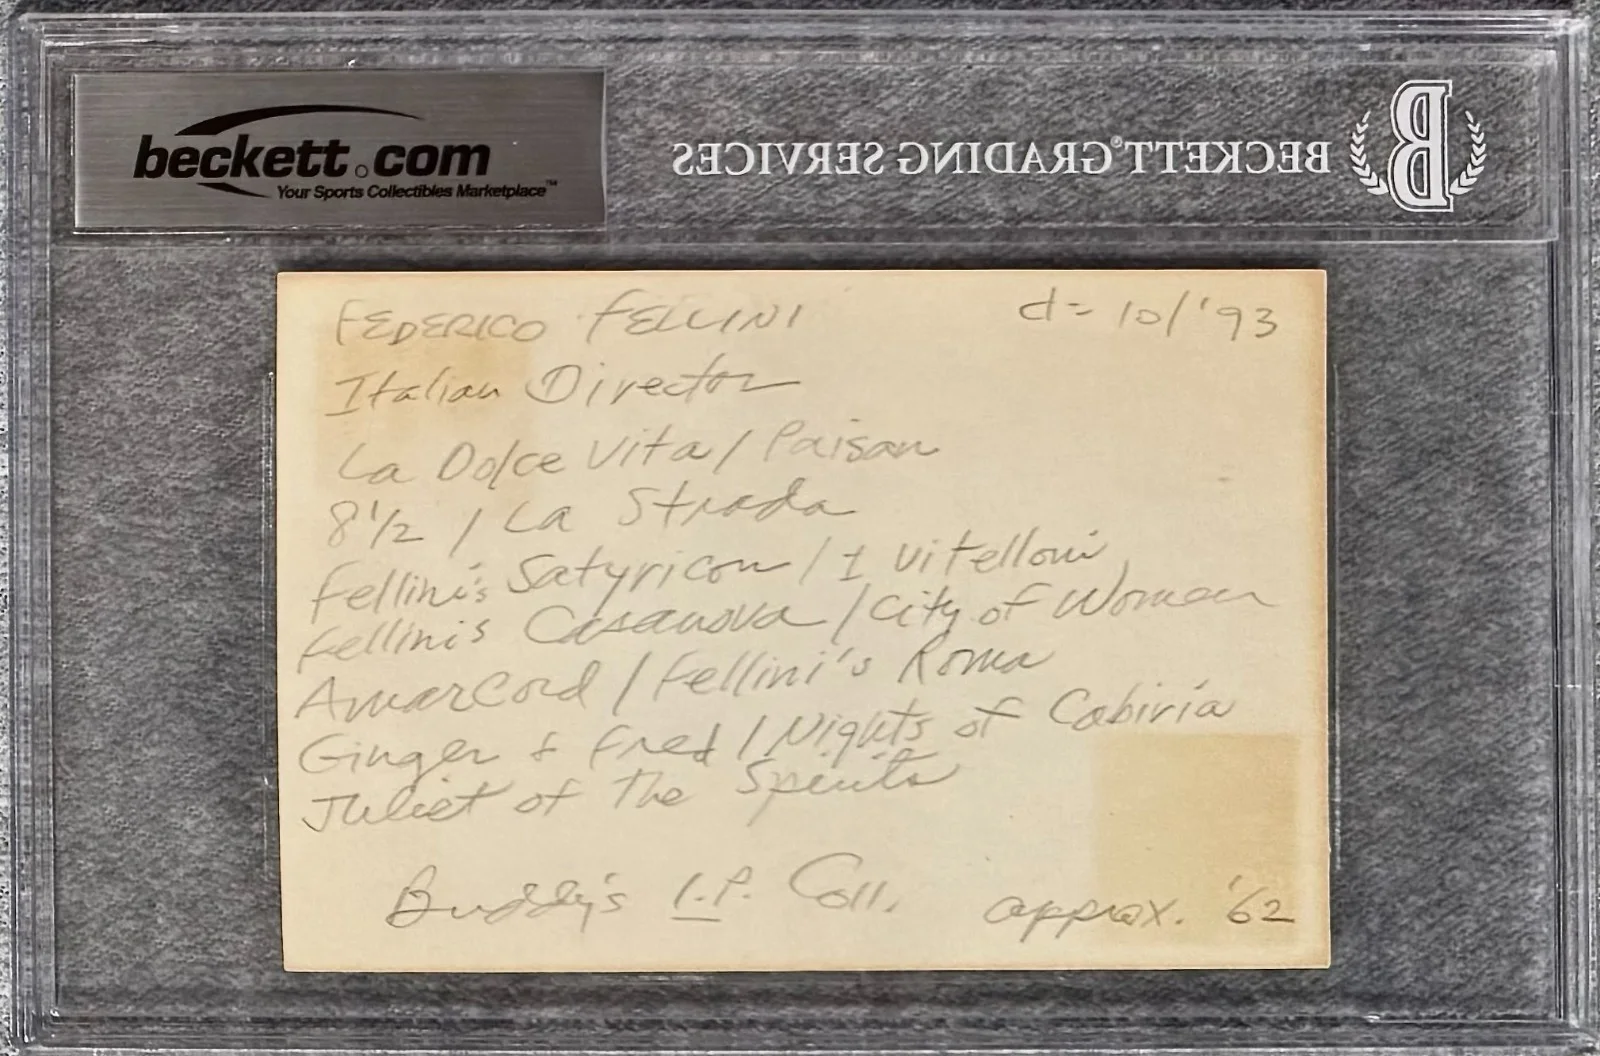 beckett.com
Your Sports Collectibles Marketplace™
BECKETT® GRADING SERVICES
B
FEDERICO FELLINI d= 10/'93
Italian Director
La Dolce Vita / Paisan
8 1/2 / La Strada
Fellini's Satyricon / I Vitelloni
Fellini's Casanova / City of Women
Amarcord / Fellini's Roma
Ginger & Fred / Nights of Cabiria
Juliet of The Spirits
Buddy's I.P. Coll. approx. '62